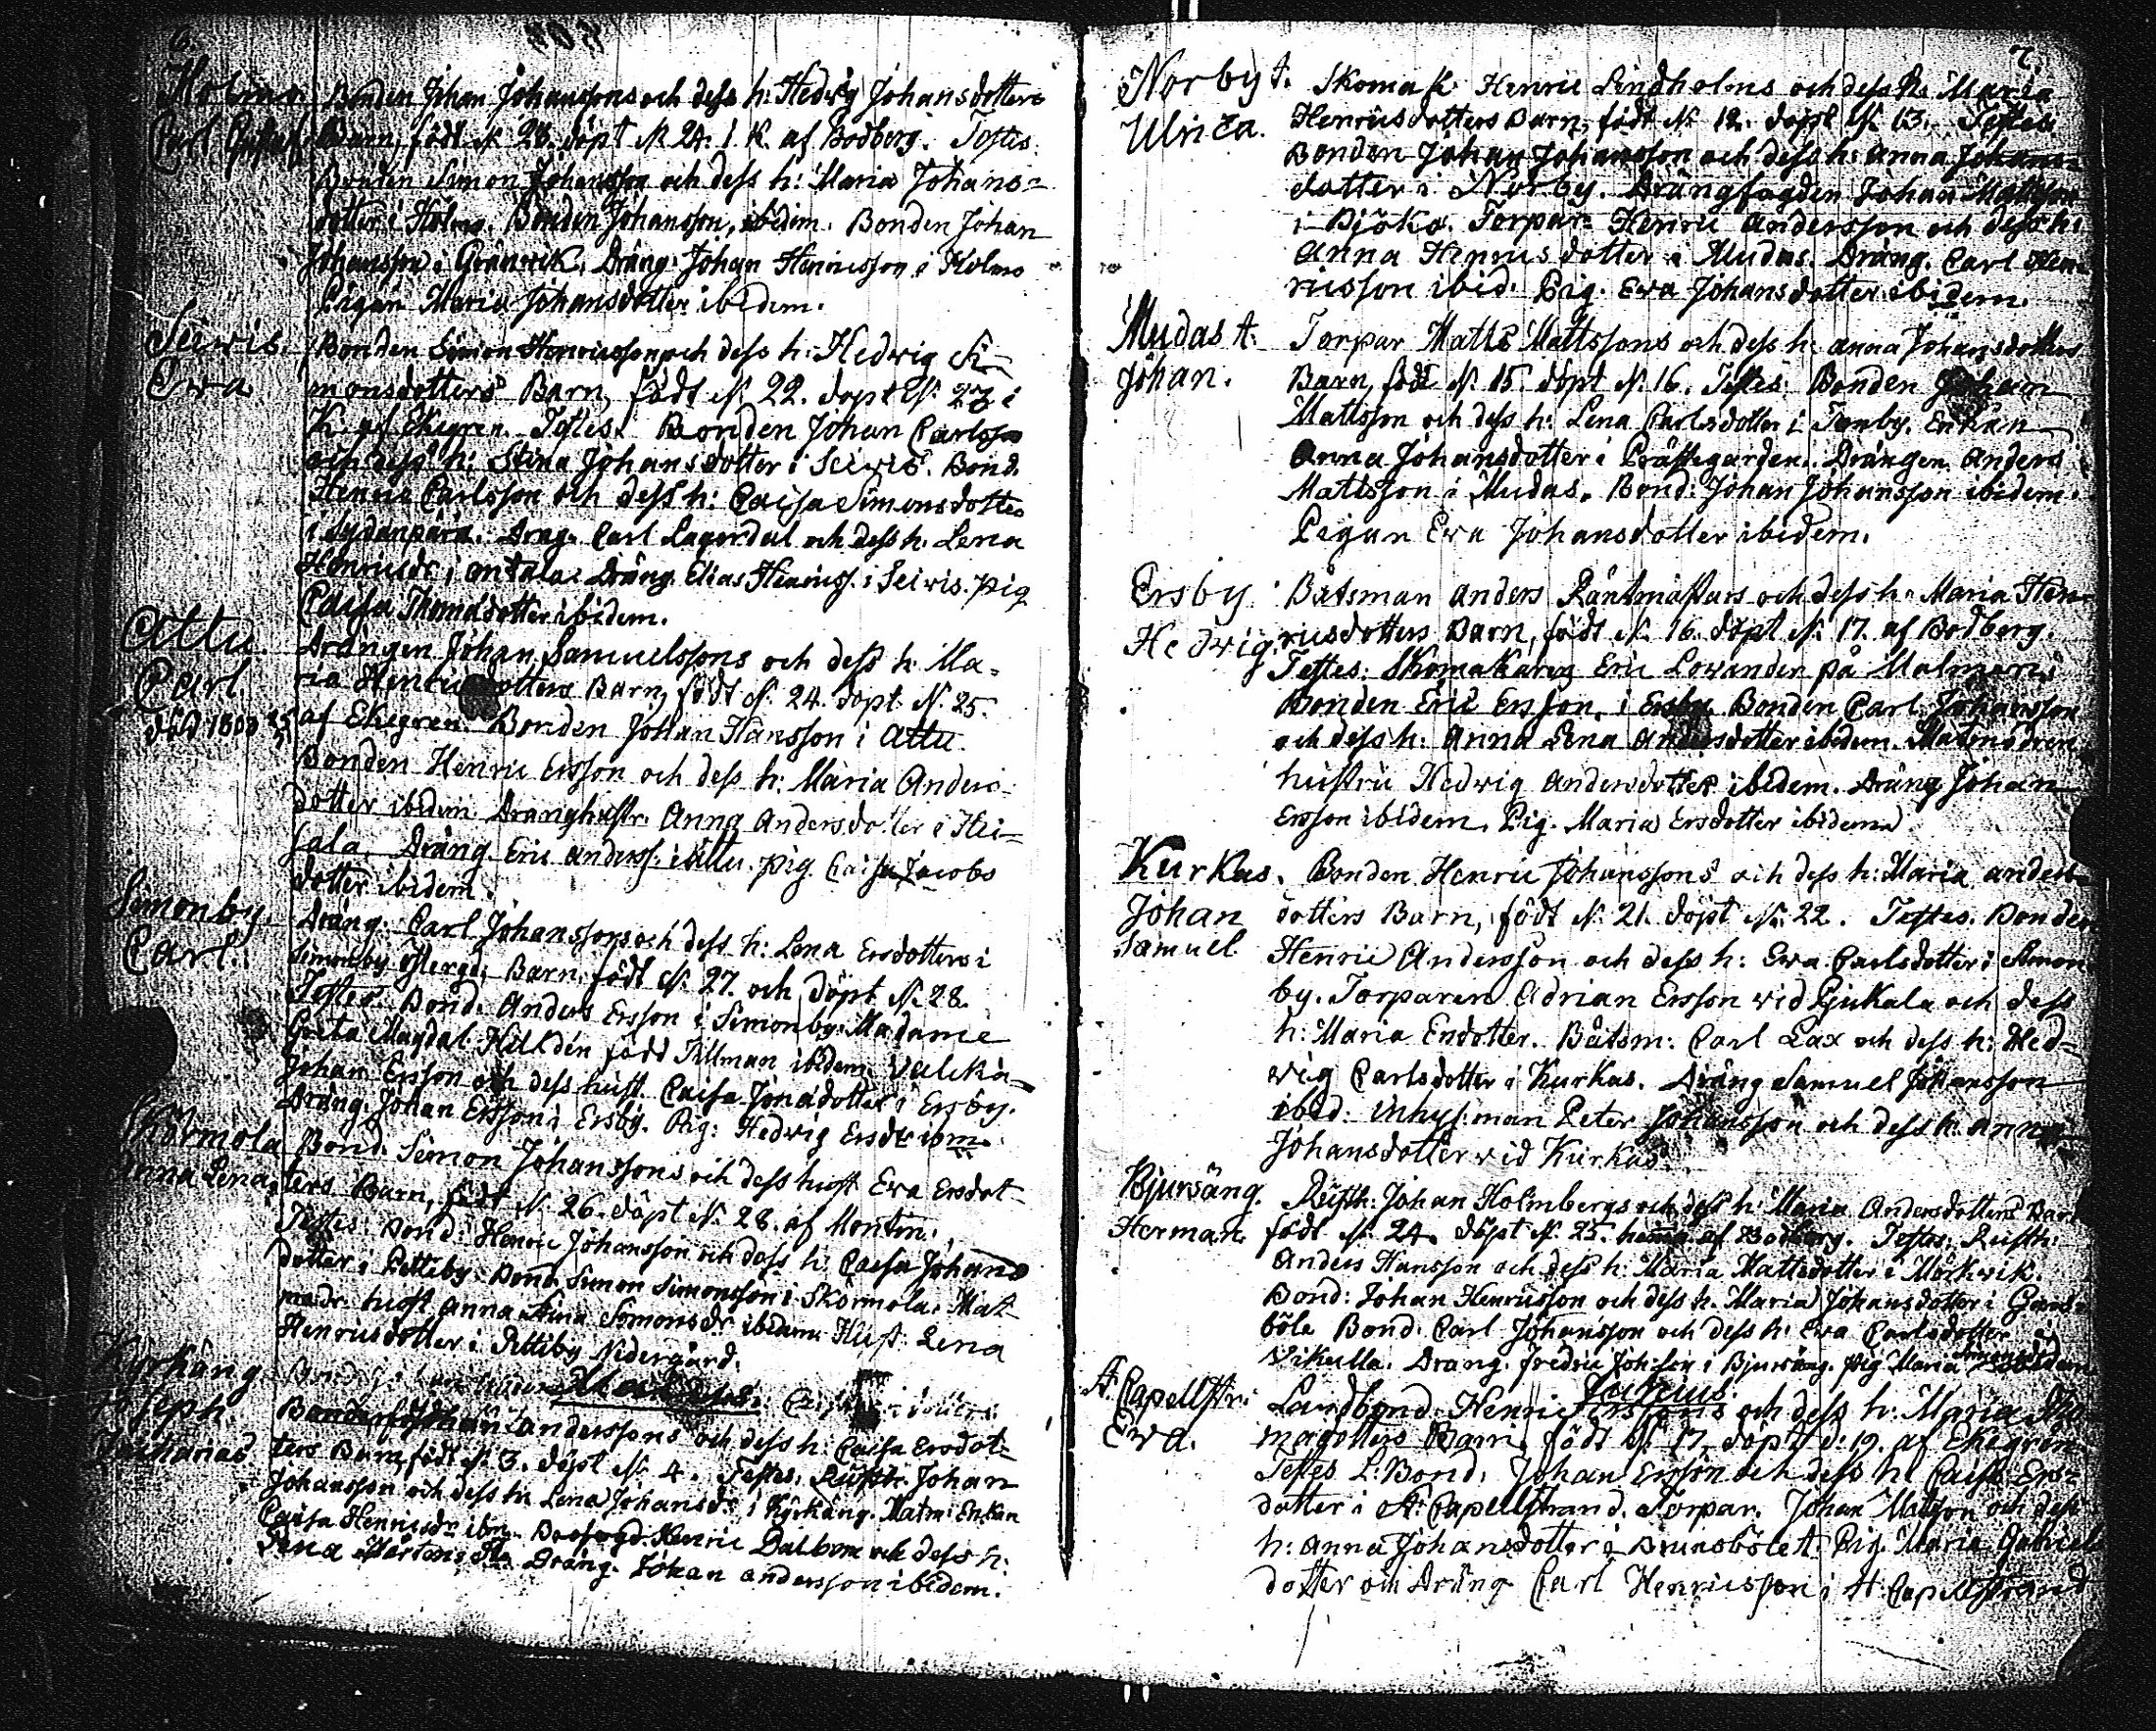 6.
Holmo. Bonden Johan Johanssons och dess h: Hedvig Johansdotters
Carl Gustaf. Barn, född N. 23. döpt N. 24. i K. af Bodberg. Testes.
Bonden Simon Johansson och dess h: Maria Johans-
dotter i Holmo. Bonden Johansson, ibidem. Bonden Johan
Johansson i Grännvik. Dräng: Johan Henricsson i Holmo
Pigan Maria Johansdotter ibidem.
Seivis. Bonden Simon Henricsson och dess h: Hedvig Si-
Eva monsdotters Barn, född N. 22. döpt N. 23 i
K. af Ekegren. Testes. Bonden Johan Carlsson
och dess h: Stina Johansdotter i Seivis. Bond.
Henric Carlsson och dess h: Caisa Simonsdotter
i Sydänperä. Dräng. Carl Lagerdal och dess h. Lena
Henricsdr, i Antala. Dräng Elias Henricss. i Seivis. pig
Caisa Thomasdotter ibidem.
Attu. Drängen Johan Samuelssons och dess h: Ma-
Carl. ria Henricsdotters Barn, född N. 24. döpt N. 25.
död 1800 af Ekegren. Bonden Johan Hansson i Attu.
Bonden Henric Ersson och dess h: Maria Anders-
dotter ibidem. Dränghustr. Anna Andersdotter i Hei-
sala. Dräng. Eric Anderss. i Attu. pig. Caisa Jacobs
dotter ibidem.
Simonby. Dräng: Carl Johanssons och dess h: Lena Ersdotters i
Carl. Simonby Östergd. Barn, född N. 27. och döpt N. 28.
Testes. Bond. Anders Ersson i Simonby. Madame
Greta Magdal. Hilldén född Tillman ibidem.
Johan Ersson och dess hust. Caisa Jonadotter i Ersby.
Dräng. Johan Ersson i Ersby. Pig: Hedvig Ersdr ibm.
Skärmola Bond. Simon Johanssons och dess hust Eva Ersdot-
Anna Lena. ters Barn, född N. 26. döpt N. 28. af Montin.
Testes: Bond: Henric Johansson och dess h: Caisa Johans
dotter i Pettiby. Bond. Simon Simonsson i Skärmola. Mat-
modr. hust Anna Stina Simonsdr ibidem. Hust: Lena
Henricsdotter i Pettiby Nidergård.
Kyrkäng
Joseph Bonden Johan Anderssons och dess h: Caisa Ersdot-
Zacharias. ters Barn, född N. 3. döpt N. 4. Testes. Rusth. Johan
Johansson och dess h: Lena Johansdr i Kyrkäng. Matm: Enkan
Caisa Henricsdr ibm. Henric Dalbom och dess h:
Lena Mårtensdr. Dräng. Johan Andersson ibidem.
7.
Norby t. Skomak. Henric Lindholms och dess h: Maria
Ulrica. Henricsdotters Barn, född N. 12. döpt N. 13. Testes.
Bonden Johan Johansson och dess h: Anna Johans-
dotter i Norby. Drängfogden Johan Mattsson
i Bjökö. Torpar: Henric Andersson och dess h:
Anna Henricsdotter i Mudas. Dräng. Carl Hen-
ricsson ibid. Pig. Eva Johansdotter ibidem.
Mudas t. Torpar Matts Mattssons och dess h: Anna Johansdotters
Johan. Barn, född N. 15. döpt N. 16. Testes. Bonden Johan
Mattsson och dess h: Lena Carlsdotter i Tamby. Enkan
Anna Johansdotter i Prästegården. Drängen Anders
Mattsson i Mudas. Bond: Johan Johansson ibidem.
Pigan Eva Johansdotter ibidem.
Ersby Båtsman Anders Räntmästars och dess h: Maria Hen-
Hedvig. ricsdotters Barn, född N. 16. döpt N. 17. af Bodberg.
Testes: Skomakaren Eric Lovander på Malmen.
Bonden Eric Ersson, i Ersby. Bonden Carl Johansson
och dess h: Anna Lena Andersdotter ibidem. Matmodren
hustru Hedvig Andersdotter ibidem. Dräng Johan
Ersson ibidem. Pig. Maria Ersdotter ibidem
Kurkas. Bonden Henric Johanssons och dess h: Maria Anders-
Johan dotters Barn, född N. 21. döpt N. 22. Testes. Bonden
Samuel Henric Andersson och dess h: Eva Carlsdotter i Simon
by. Torparen Adrian Ersson vid Pjukala och dess
h: Maria Ersdotter. Båtsm: Carl Lax och dess h: Hed-
vig Carlsdotter i Kurkas. Dräng Samuel Johansson
ibid: inhys: man Peter Johansson och dess h: Anna
Johansdotter vid Kurkas.
Bjursäng. Rusth: Johan Holmbergs och dess h: Maria Andersdotters Barn
Herman. född N. 24. döpt N. 25. hemma af Bodberg. Testes: Rusth:
Anders Hansson och dess h: Maria Mattsdotter i Mörkvik.
Bond: Johan Henricsson och dess h. Maria Johansdotter i Guns-
böle Bond. Carl Johansson och dess h: Eva Carlsdotter i
Vikulla. Dräng. Fredric Johsson i Bjursäng. pig Maria ibidem
Junius.
t. Capellstr: Landbond. Henric Erssons och dess h: Maria Tho
Eva. madotters Barn, född N. 17. döpt d: 19. af Ekegren
Testes L: Bond, Johan Ersson och dess h: Caisa Ers-
dotter i t. Capellstrand. Torpar. Johan Mattsson och dess
h: Anna Johansdotter i Brunsböle t. Pig. Maria Gabriels
dotter och Dräng Carl Henricsson i t. Capellstrand